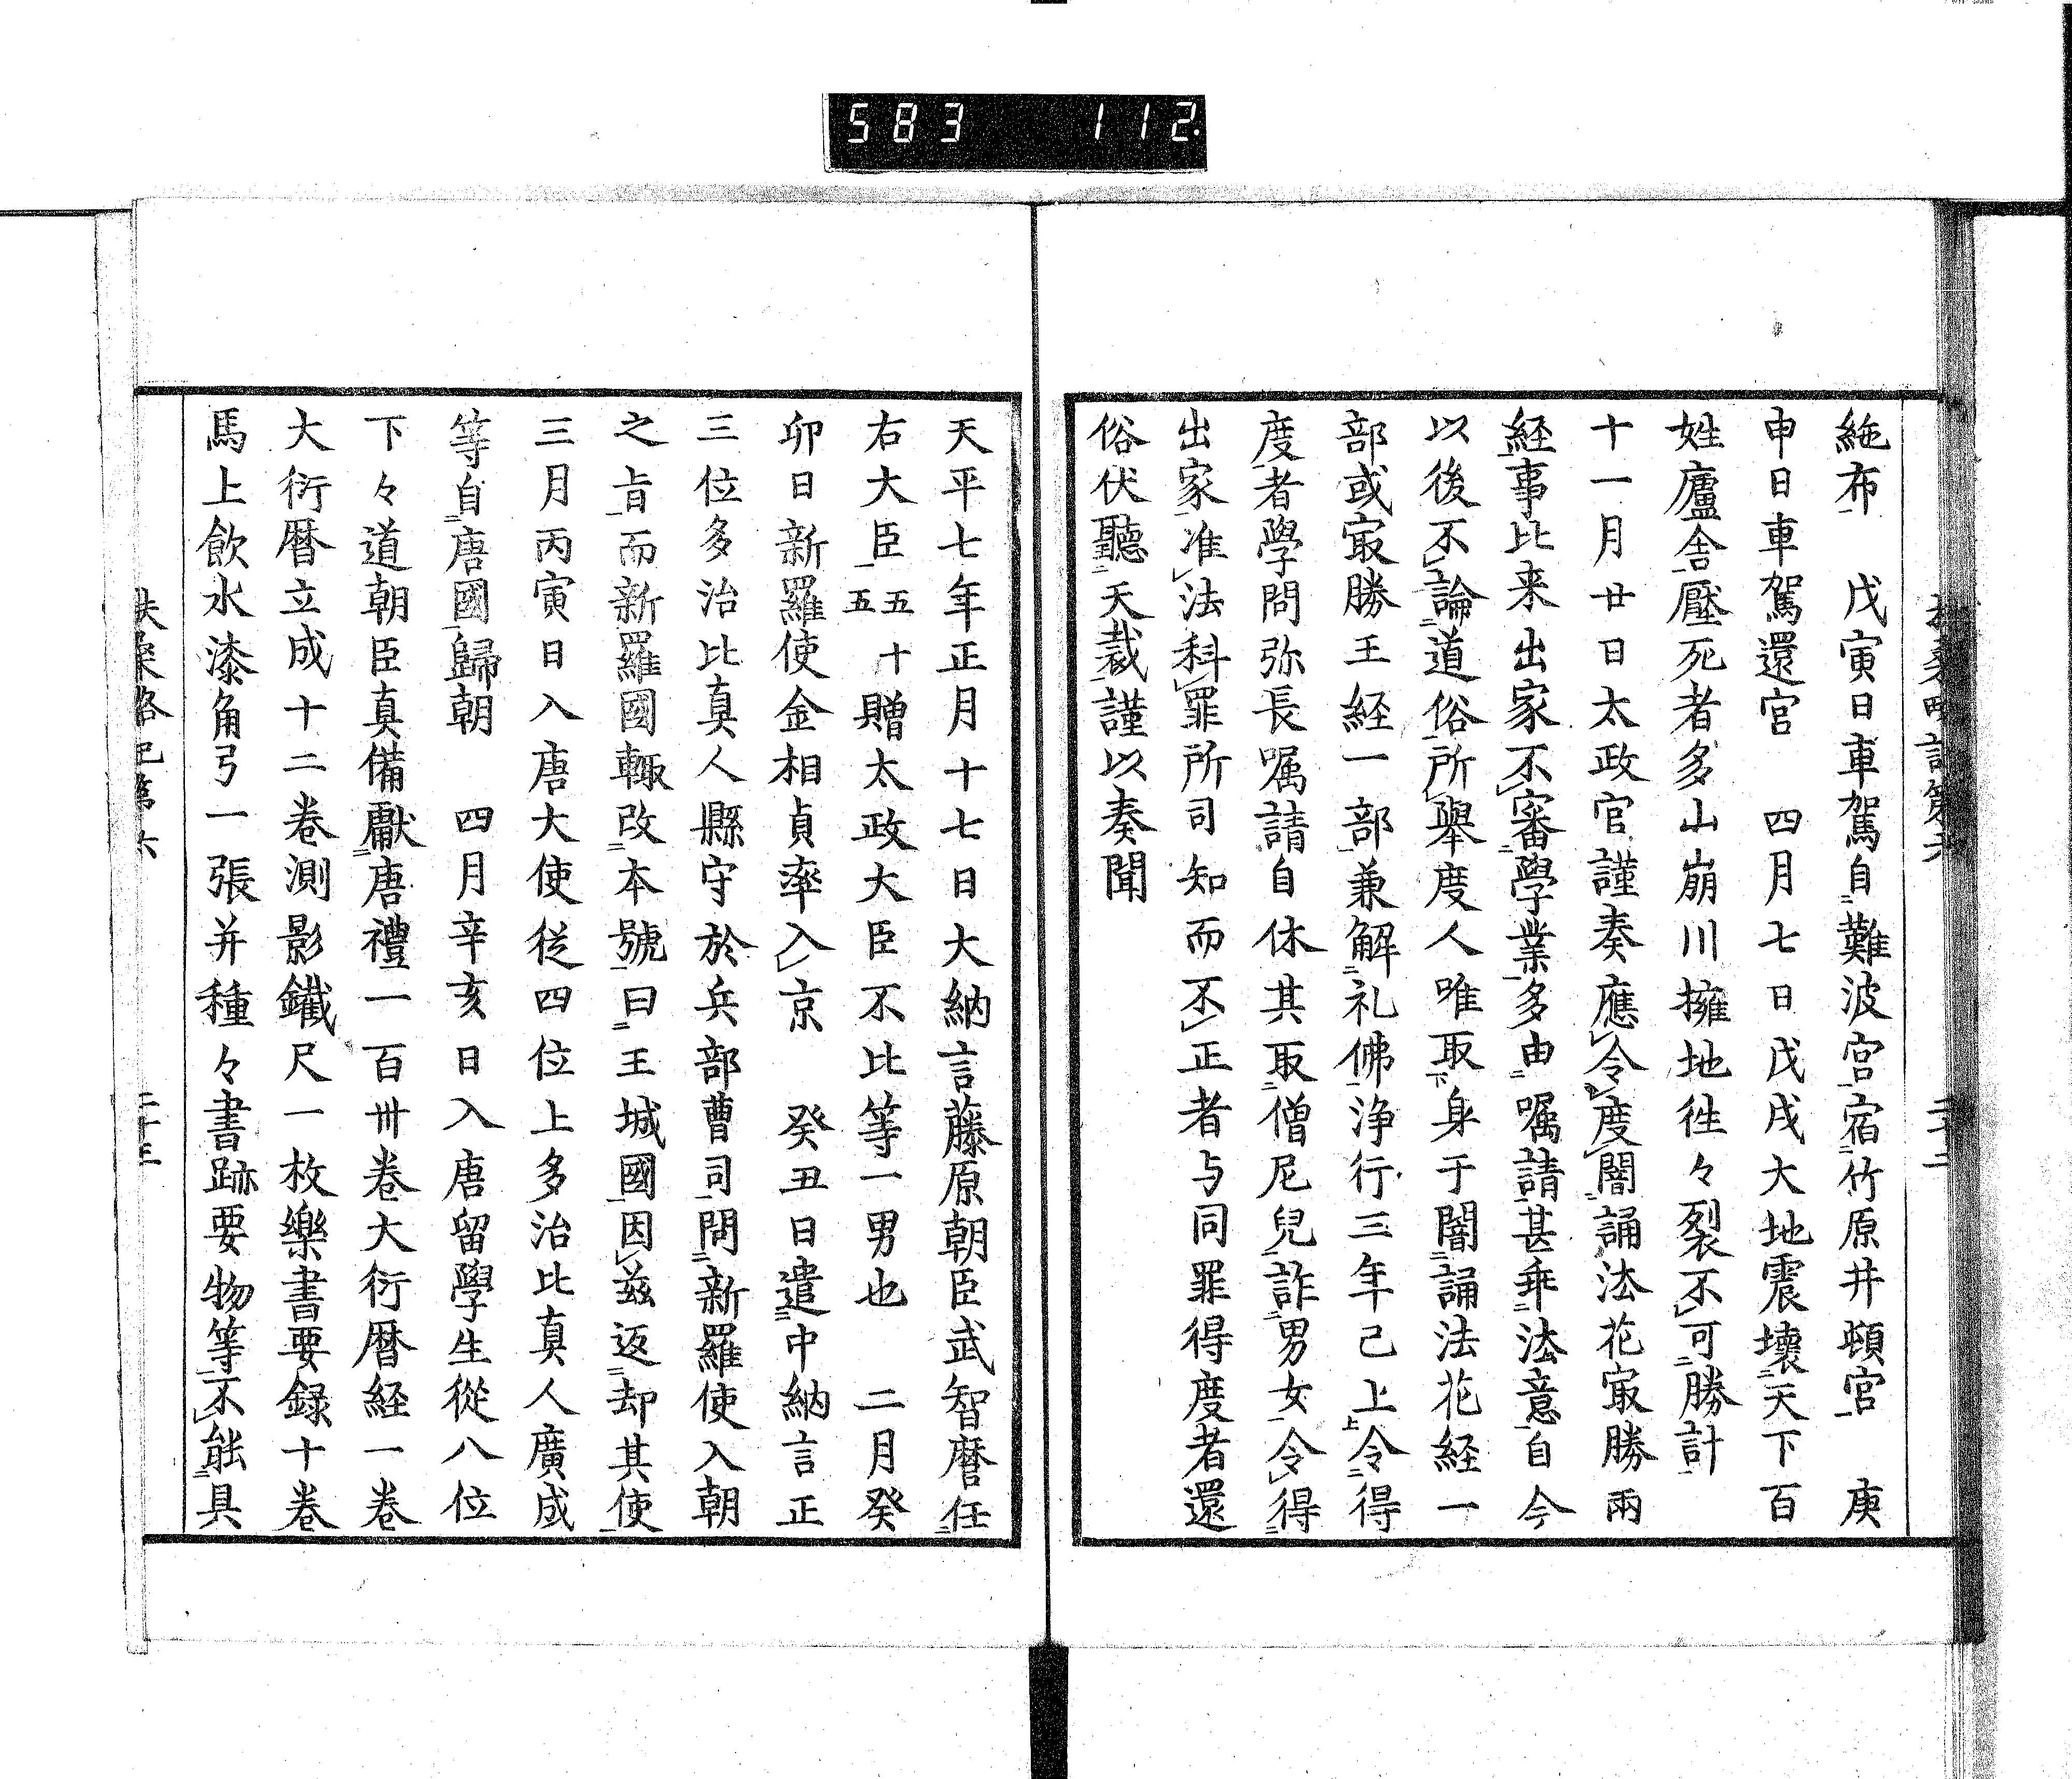 583 112.
絁布　戊寅日車駕自難波宮宿竹原井頓宮　庚
申日車駕還宮　四月七日戊戌大地震壊天下百
姓廬舎壓死者多山崩川擁地徃々裂不可勝計
十一月廿日太政官謹奏應令度闇誦法花冣勝兩
経事比来出家不審學業多由嘱請甚乖法意自今
以後不論道俗所舉度人唯取身于闇誦法花経一
部或冣勝王経一部兼解礼佛浄行三年己上令得
度者學問弥長嘱請自休其取僧尼兒詐男女令得
出家准法科罪所司知而不正者与同罪得度者還
俗伏聽天裁謹以奏聞
天平七年正月十七日大納言藤原朝臣武智麿任
右大臣五十五贈太政大臣不比等一男也　二月癸
卯日新羅使金相貞率入京　癸丑日遣中納言正
三位多治比真人縣守於兵部曹司問新羅使入朝
之旨而新羅國輙改本號曰王城國因茲返却其使
三月丙寅日入唐大使従四位上多治比真人廣成
等自唐國歸朝　四月辛亥日入唐留學生從八位
下々道朝臣真備獻唐禮一百卅巻大衍暦経一巻
大衍暦立成十二巻測影鐵尺一枚樂書要録十巻
馬上飲水漆角弓一張并種々書跡要物等不能具
扶桑略記第六
二十三